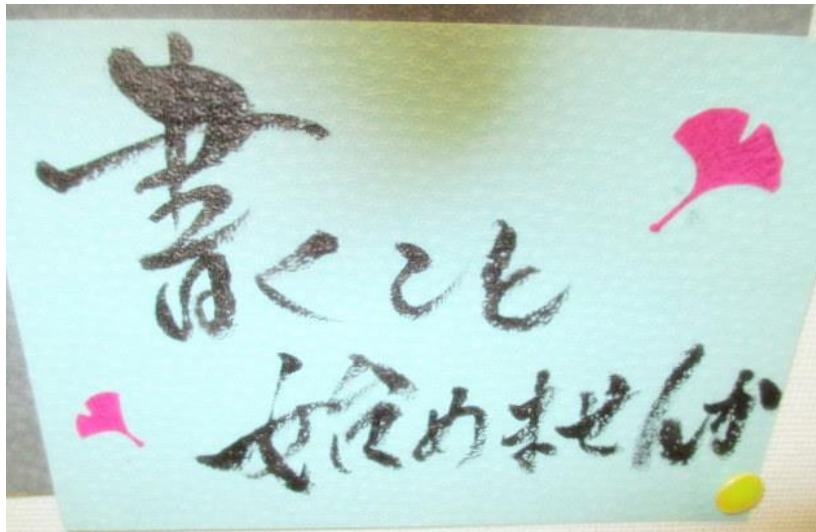 書くこと
始めませんか